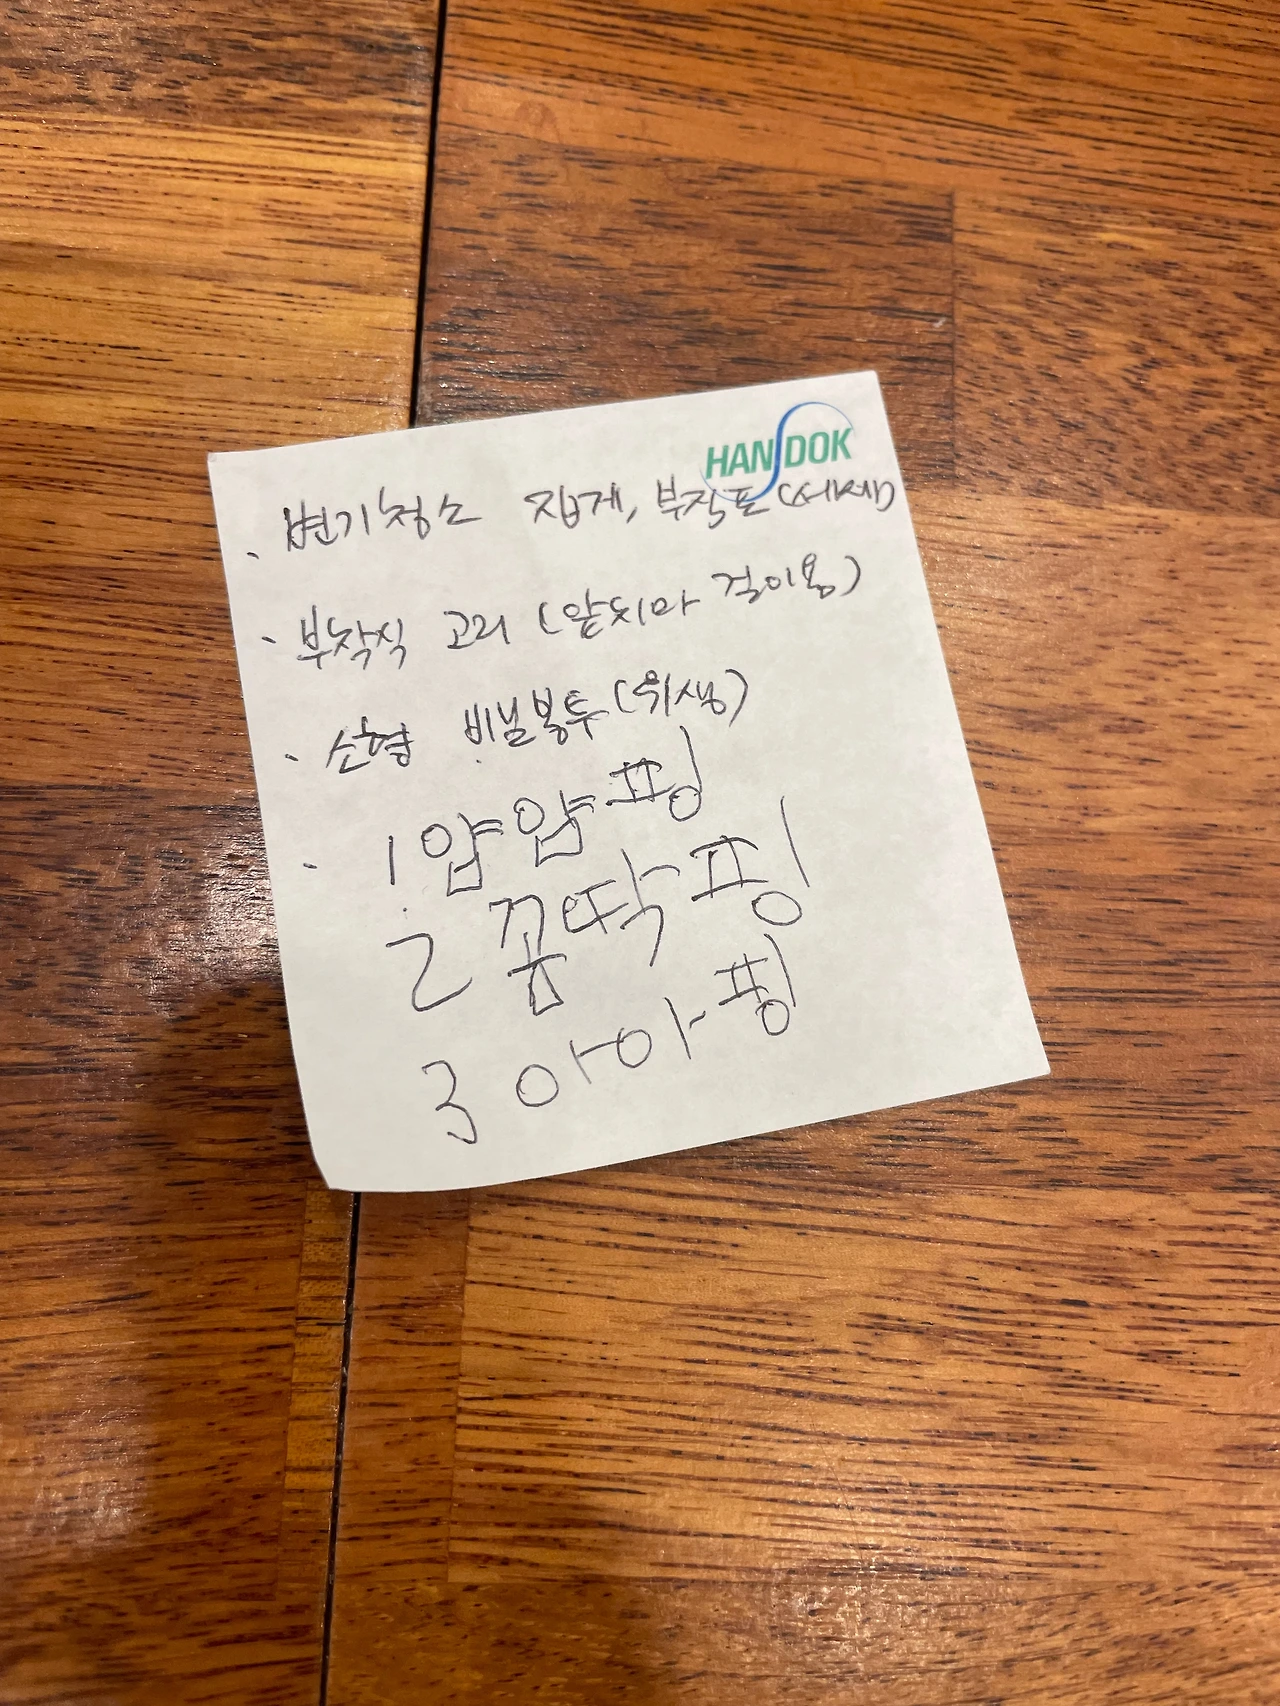 HANDOK
· 변기청소 집게, 부직포 (세제)
· 부착식 고리 (앞치마 걸이용)
· 소형 비닐봉투 (위생)
· 1 얍얍핑
2 꼼딱핑
3 아아핑